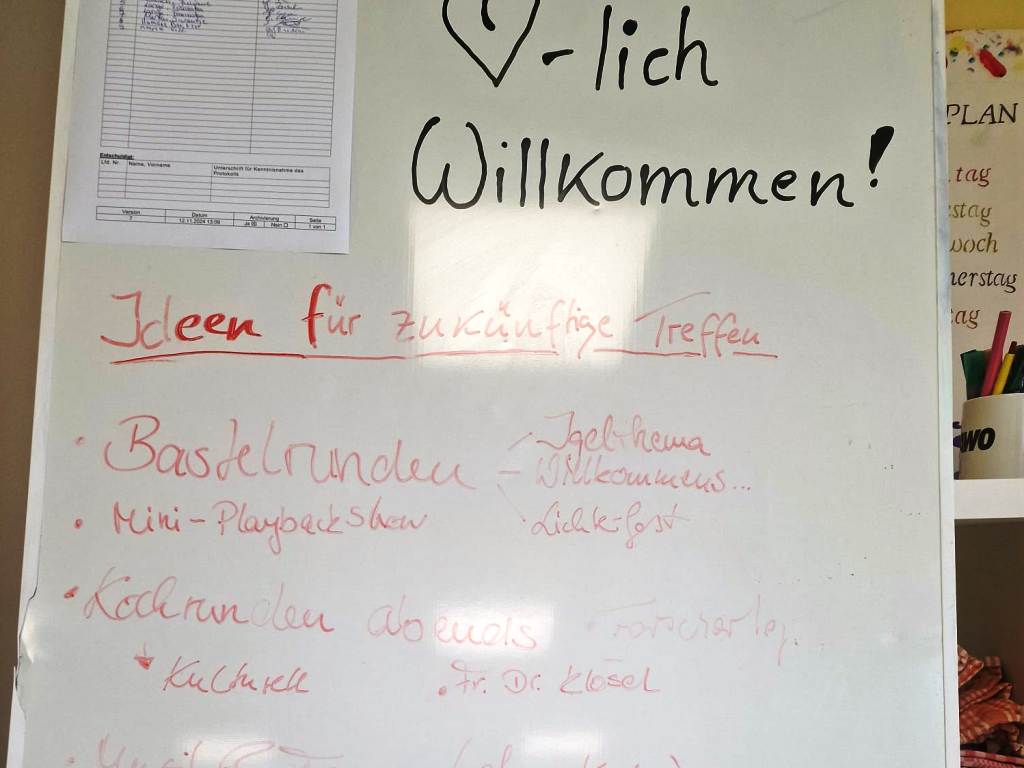 ♡-lich
Willkommen!
Entschuldigt:
Lfd. Nr. Name, Vorname Unterschrift für Kenntnisnahme des Protokolls
Version Datum Archivierung Seite
7 12.11.2024 13:09 Ja ☒ Nein ☐ 1 von 1
Ideen für zukünftige Treffen
• Bastelrunden
Igelthema
Willkommens...
Lichterfest
• Mini-Playbackshow
• Kochrunden abends
Kulturell
• Fr. Dr. Klösel
PLAN
tag
stag
woch
nerstag
tag
WO